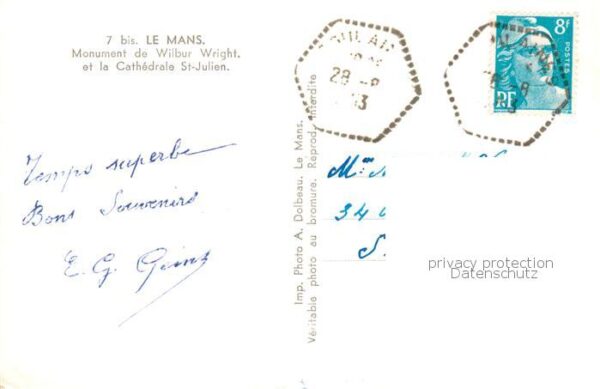 7 bis. LE MANS.
Monument de Wilbur Wright,
et la Cathédrale St-Julien.
Temps superbe
Bons Souvenirs
E. G.
Imp. Photo A. Dolbeau. Le Mans.
Véritable photo au bromure. Reprod. interdite
28 -8
8f
POSTES
RF
Mme
34
S.
privacy protection
Datenschutz